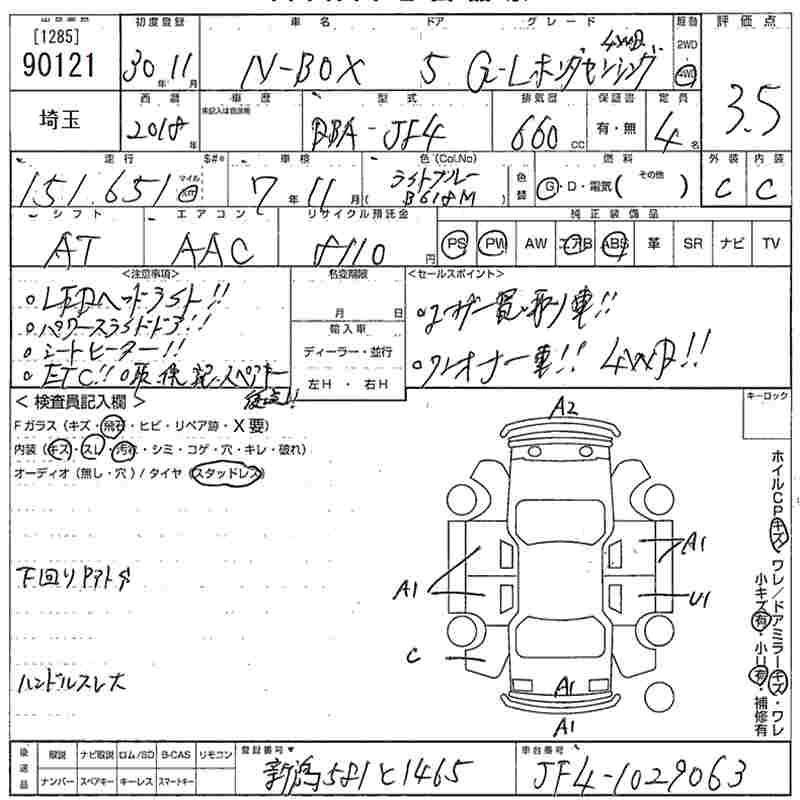 [1285]
90121
初度登録
30年11月
車名
N-BOX
ドア
5
グレード
4WD
G-Lホンダセンシング
駆動
2WD
4WD
評価点
3.5
埼玉
西暦
2018年
車歴
未記入は自家用
型式
DBA-JF4
排気量
660cc
保証書
有・無
定員
4名
外装
C
内装
C
走行
151,651
マイル
km
S#*
車検
7年11月
色(Col.No)
ライトブルー
(B618M)
色替
燃料
G・D・電気( その他 )
シフト
AT
エアコン
AAC
リサイクル預託金
8110円
純正装備品
PS PW AW エアB ABS 革 SR ナビ TV
<注意事項>
○LEDヘッドライト!!
○パワースライドドア!!
○シートヒーター!!
○ETC!! ○取.保.記.スペアキー
後送!!
名変期限
月 日
輸入車
ディーラー・並行
左H ・ 右H
<セールスポイント>
○ユーザー買い取り車!!
○ワンオーナー車!! 4WD!!
<検査員記入欄>
Fガラス(キズ・飛石・ヒビ・リペア跡・X要)
内装(キズ・スレ・汚れ・シミ・コゲ・穴・キレ・破れ)
オーディオ(無し・穴)/タイヤ(スタッドレス)
下回りサビ
ハンドルスレ大
キーロック
A2
A1
A1
U1
C
A1
A1
ホイルCPキズ・ワレ/ドアミラーキズ・ワレ
小キズ有・小U有・補修有
後送品
解説 ナビ取説 ロム/SD B-CAS リモコン
ナンバー スペアキー キーレス スマートキー
登録番号
新潟581と1465
車台番号
JF4-1029063